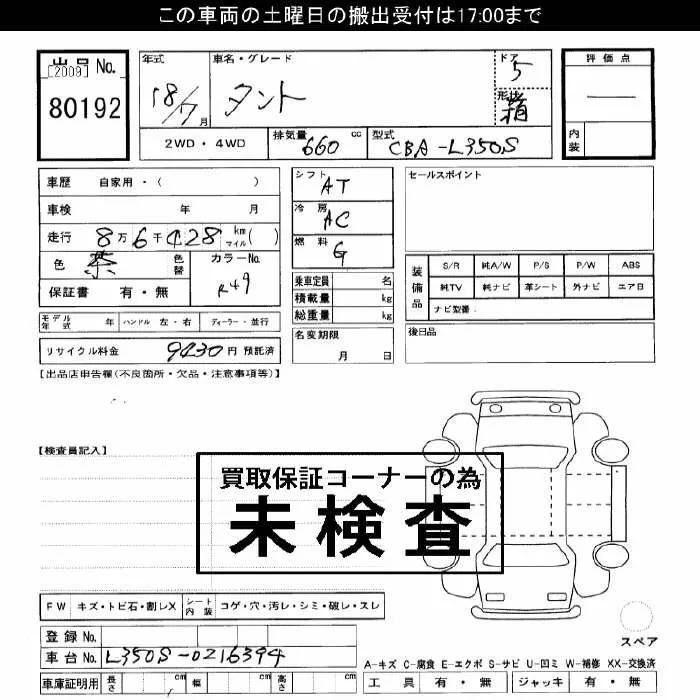 この車両の土曜日の搬出受付は17:00まで
出品No.
[2009]
80192
年式
18/7月
車名・グレード
タント
ドア
5
形状
箱
評価点
—
内装
2WD・4WD
排気量 660 cc
型式 CBA-L350S
車歴 自家用・( )
車検 年 月
走行 8万6千428 km マイル ( )
色 茶 色替
カラーNo. R49
保証書 有・無
モデル年式 年 ハンドル 左・右 ディーラー・並行
リサイクル料金 9430円 預託済
シフト AT
冷房 AC
燃料 G
乗車定員 名
積載量 kg
総重量 kg
名変期限
月 日
セールスポイント
装備品
S/R 純A/W P/S P/W ABS
純TV 純ナビ 革シート 外ナビ エアB
ナビ型番
後日品
【出品店申告欄(不良箇所・欠品・注意事項等)】
【検査員記入】
買取保証コーナーの為
未検査
FW キズ・トビ石・割レX シート内装 コゲ・穴・汚レ・シミ・破レ・スレ
登録No.
車台No. L350S-0216394
車庫証明用 長さ cm 幅 cm 高さ cm
スペア
A-キズ C-腐食 E-エクボ S-サビ U-凹ミ W-補修 XX-交換済
工具 有・無 ジャッキ 有・無